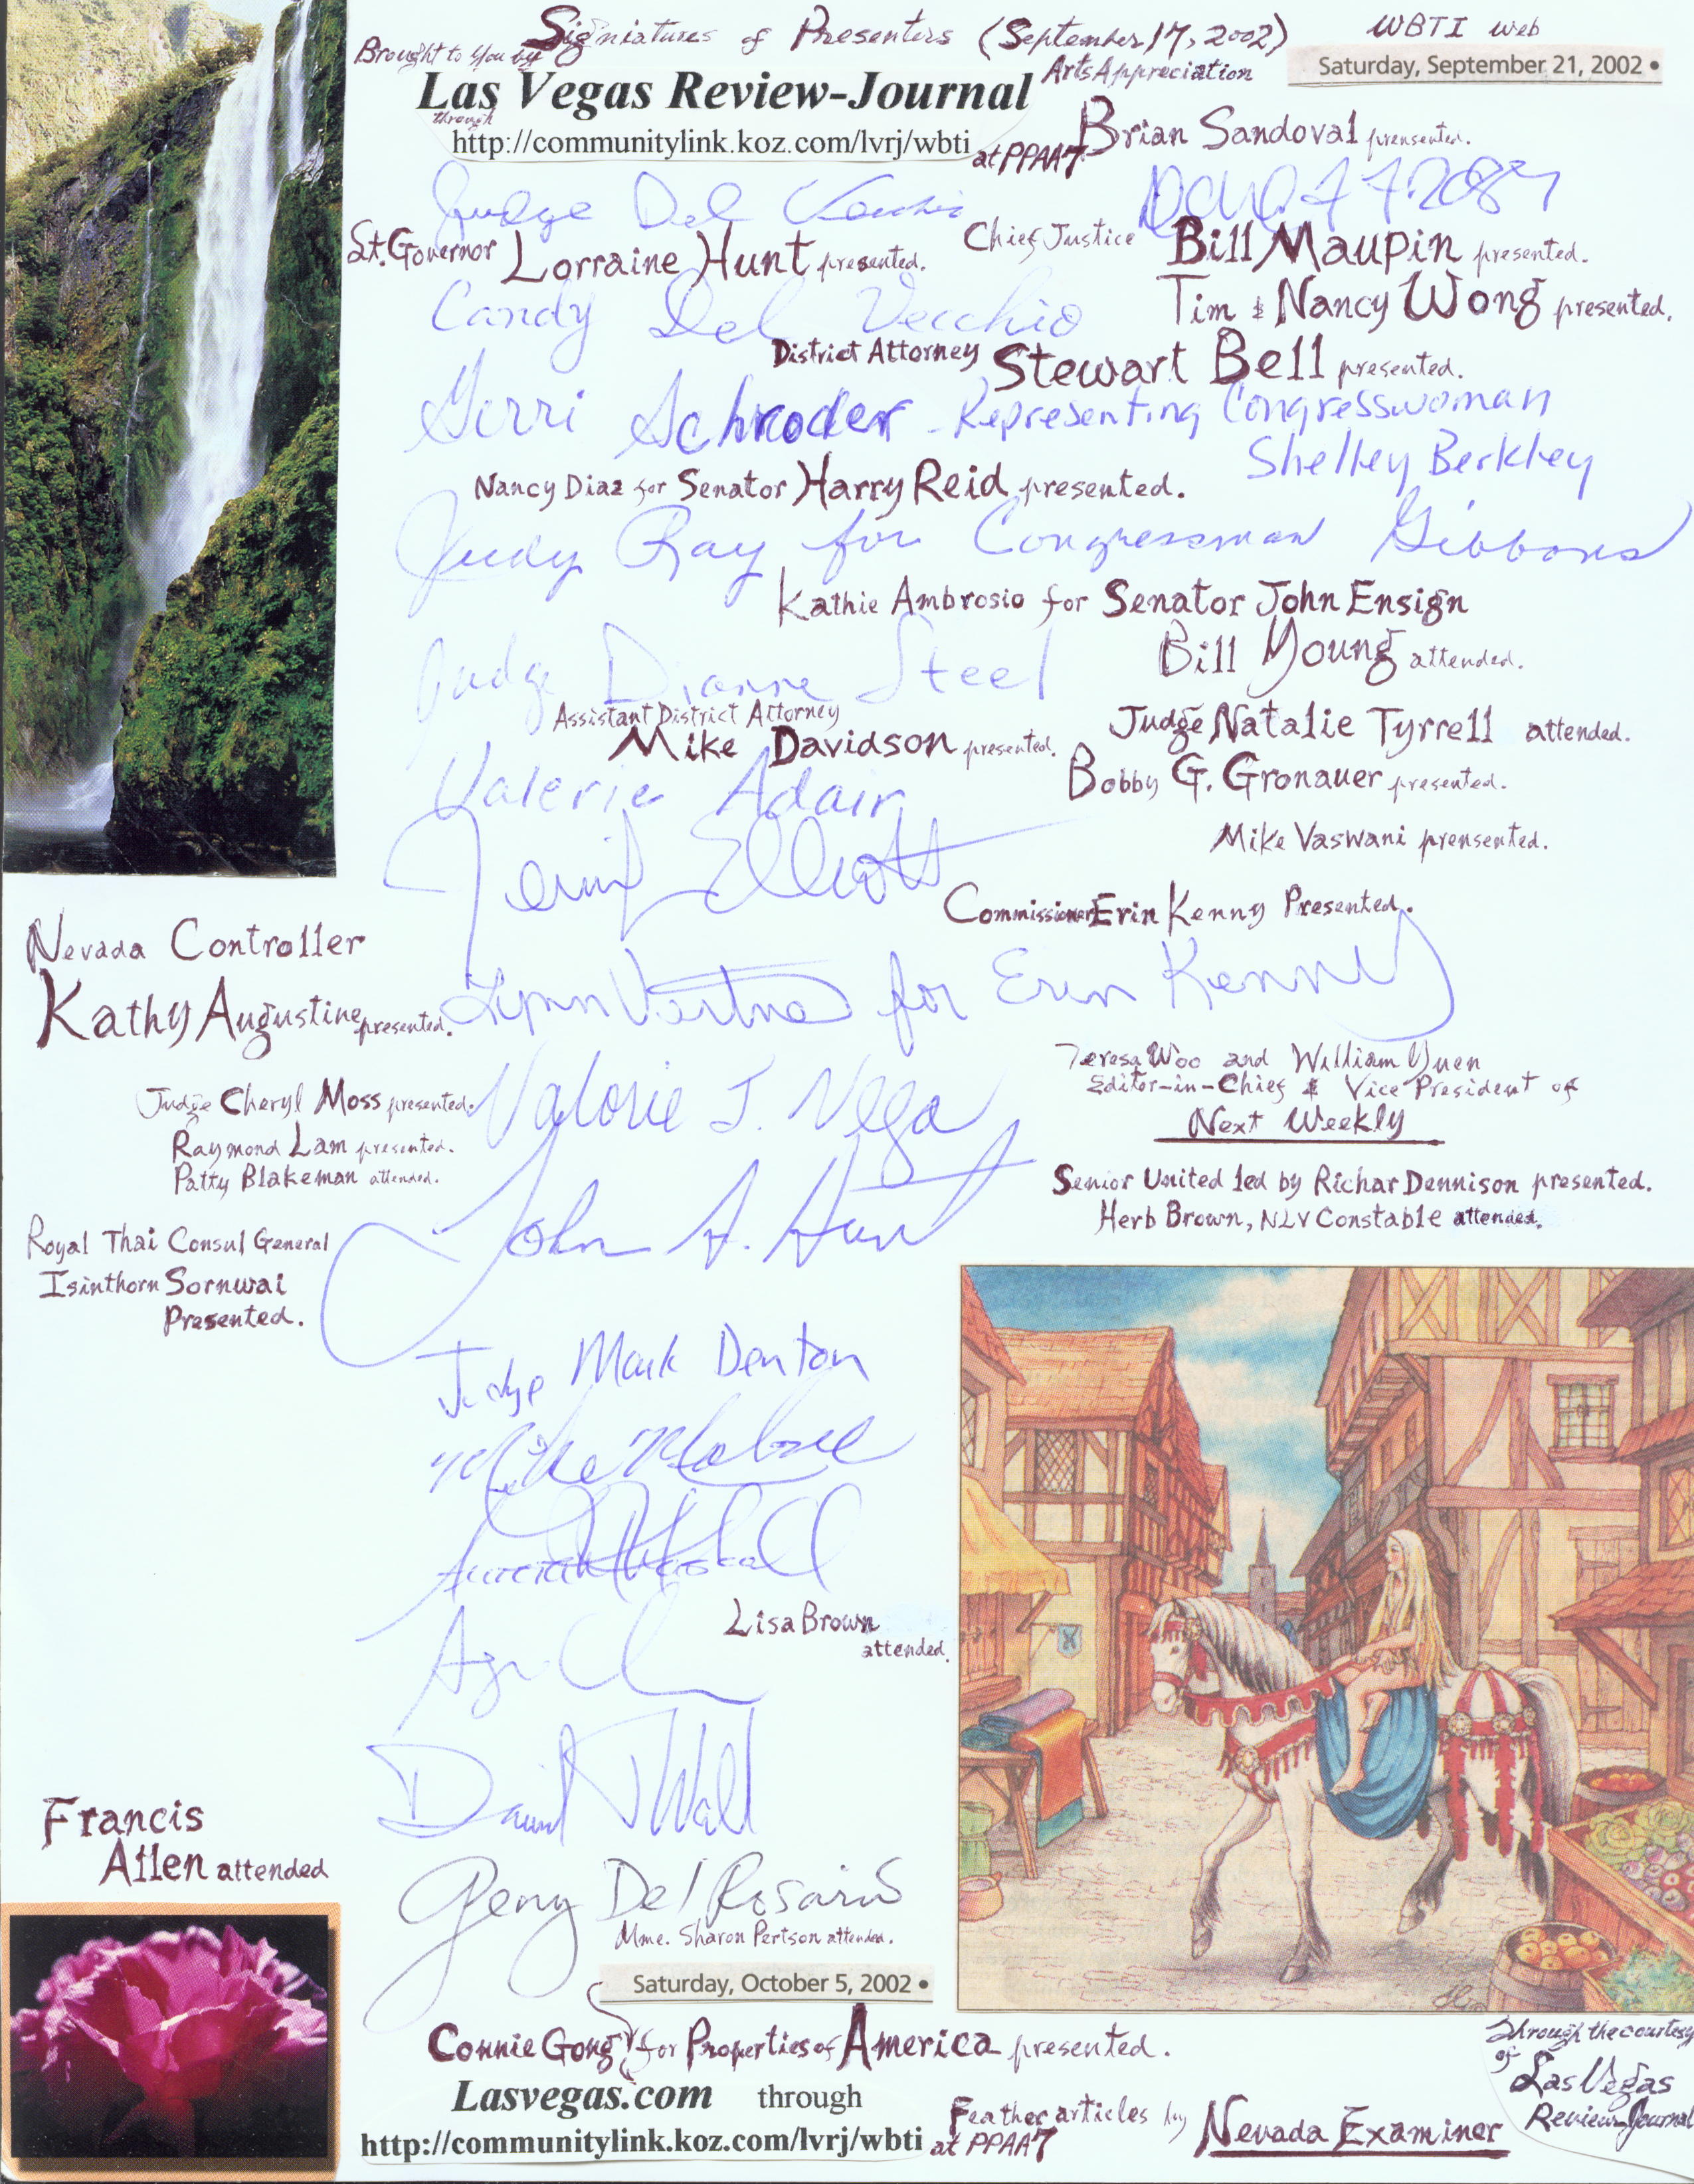 Signiatures of Presenters (September 17, 2002)
WBTI web
Brought to you by
Arts Appreciation
Saturday, September 21, 2002 •
Las Vegas Review-Journal
through
http://communitylink.koz.com/lvrj/wbti
at PPAA7
Brian Sandoval prensented.
Judge Del Vecchio
Lt. Governor Lorraine Hunt presented.
Chief Justice Bill Maupin presented.
Candy Del Vecchio
Tim & Nancy Wong presented.
District Attorney Stewart Bell presented.
Gerri Schroder - Representing Congresswoman
Shelley Berkley
Nancy Diaz for Senator Harry Reid presented.
Judy Ray for Congressman Gibbons
Kathie Ambrosio for Senator John Ensign
Bill Young attended.
Judge Dianne Steel
Assistant District Attorney
Mike Davidson presented.
Judge Natalie Tyrrell attended.
Bobby G. Gronauer presented.
Valerie Adair
Mike Vaswani prensented.
Elliott
Commissioner Erin Kenny Presented.
Nevada Controller
Kathy Augustine presented.
Lynn for Erin Kenny
Teresa Woo and William Yuen
Editor-in-Chief & Vice President of
Next Weekly
Judge Cheryl Moss presented.
Valorie J. Vega
Raymond Lam presented.
Patty Blakeman attended.
Senior United led by Richar Dennison presented.
Herb Brown, NLV Constable attended.
John A. Hunt
Royal Thai Consul General
Isinthorn Sornwai
Presented.
Judge Mark Denton
Mike
Lisa Brown
attended.
David Wall
Francis
Allen attended
Geny Del Rosario
Mme. Sharon Pertson attended.
Saturday, October 5, 2002 •
Connie Gong for Properties of America presented.
Lasvegas.com through
http://communitylink.koz.com/lvrj/wbti
at PPAA7
Feather articles by Nevada Examiner
Through the courtesy
of
Las Vegas
Review-Journal